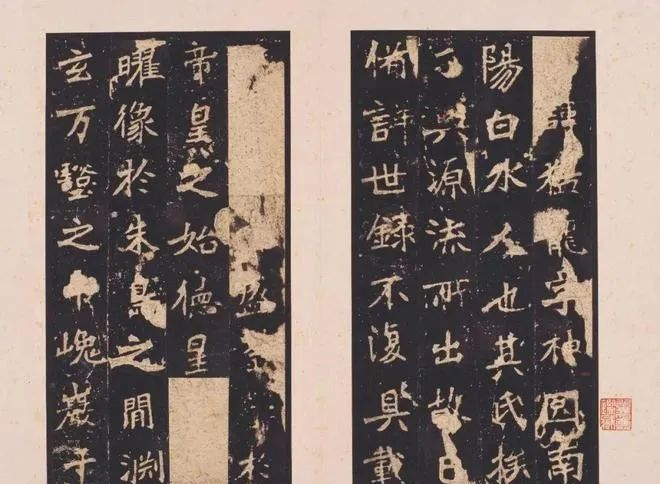 諱猛龍字神囧南
陽白水人也其氏族
分興源流所出故已
備詳世録不復具載
盛於
帝皇之始德星
曜像於朱鳥之閒淵
玄万壑之中巍巖千